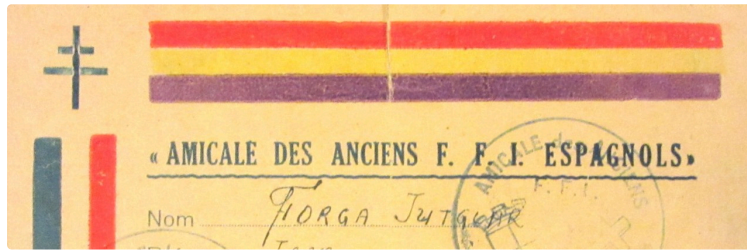 « AMICALE DES ANCIENS F. F. I. ESPAGNOLS»
Nom FORGA JUTGLAR
AMICALE des ANCIENS
F.F.I.